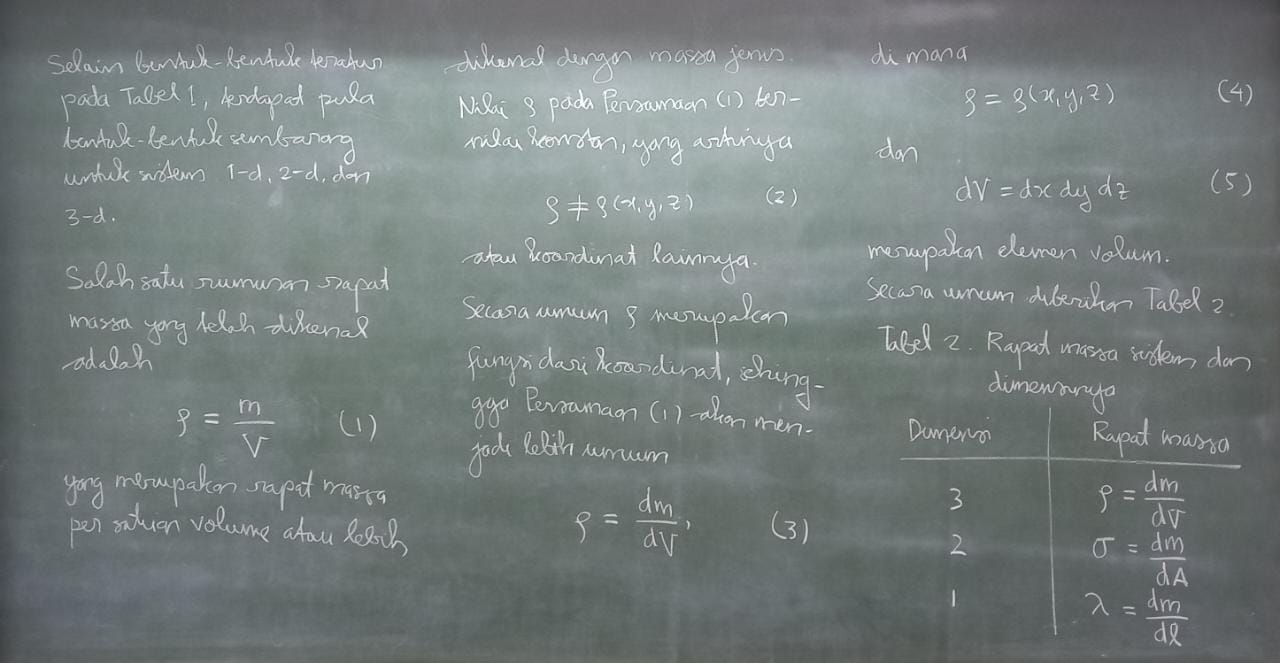 Selain bentuk-bentuk teratur
pada Tabel 1, terdapat pula
bentuk-bentuk sembarang
untuk sistem 1-d, 2-d, dan
3-d.
Salah satu rumusan rapat
massa yang telah dikenal
adalah
ρ = m/V (1)
yang merupakan rapat massa
per satuan volume atau lebih
dikenal dengan massa jenis.
Nilai ρ pada Persamaan (1) ber-
nilai konstan, yang artinya
ρ ≠ ρ(x, y, z) (2)
atau koordinat lainnya.
Secara umum ρ merupakan
fungsi dari koordinat, sehing-
ga Persamaan (1) akan men-
jadi lebih umum
ρ = dm/dV, (3)
di mana
ρ = ρ(x, y, z) (4)
dan
dV = dx dy dz (5)
merupakan elemen volum.
Secara umum diberikan Tabel 2.
Tabel 2. Rapat massa sistem dan
dimensinya
Dimensi Rapat massa
3 ρ = dm/dV
2 σ = dm/dA
1 λ = dm/dl